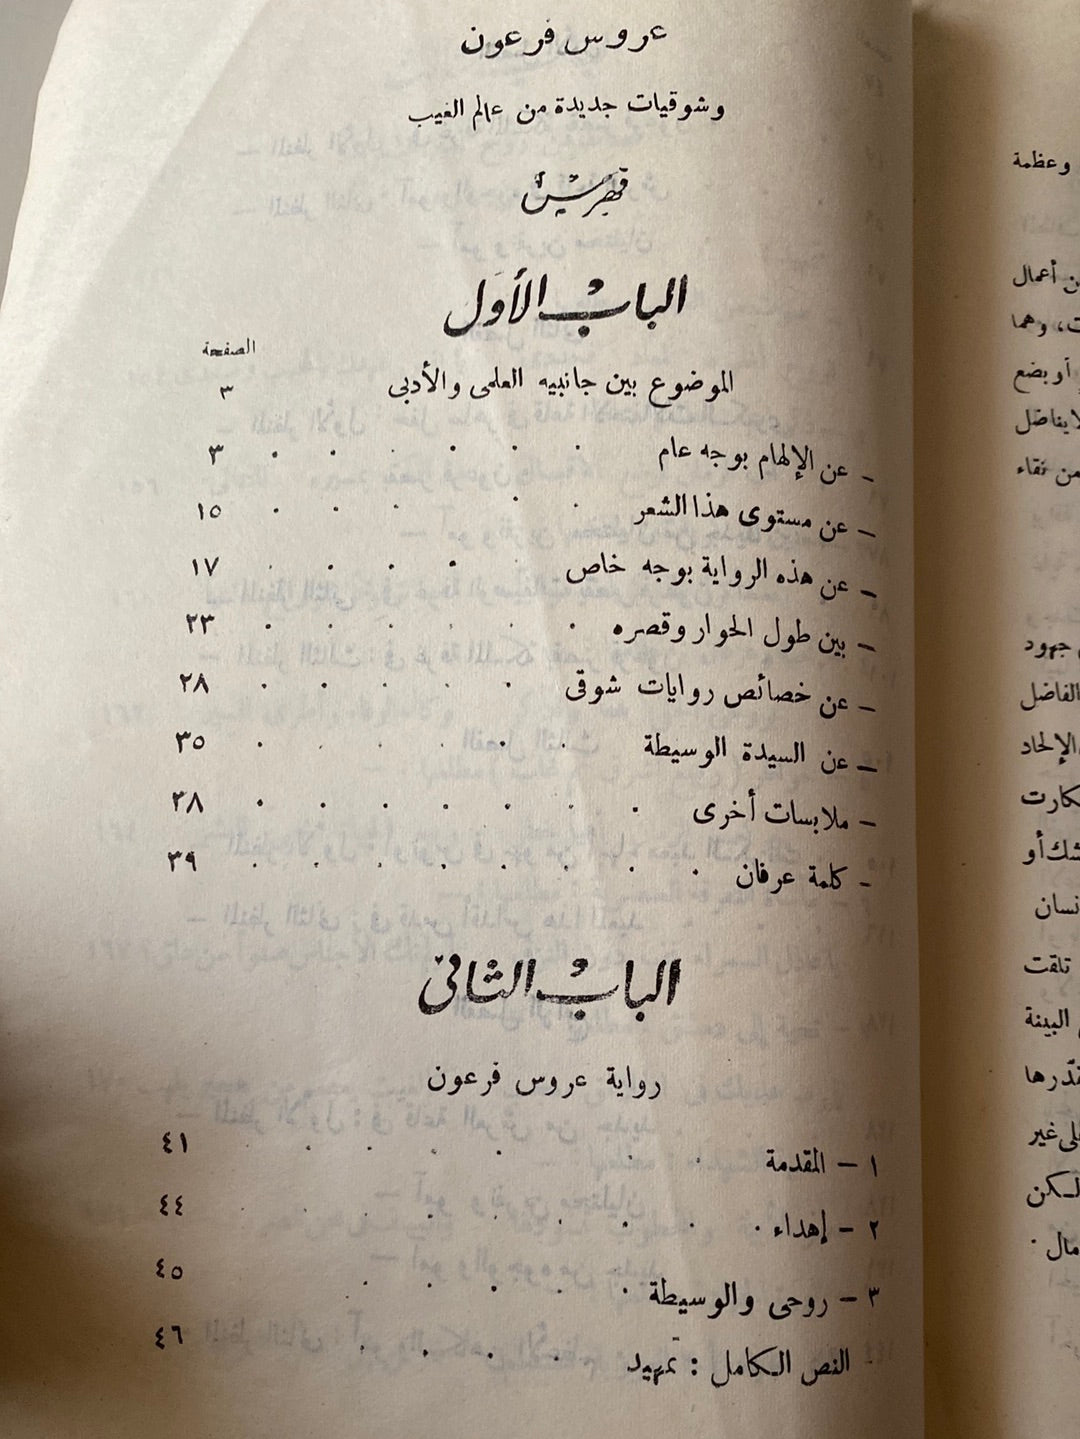 عروس فرعون
وشوقيات جديدة من عالم الغيب
فهرس
الباب الأول
الصفحة
الموضوع بين جانبيه العلمى والأدبى ٣
– عن الإلهام بوجه عام ٣
– عن مستوى هذا الشعر ١٥
– عن هذه الرواية بوجه خاص ١٧
– بين طول الحوار وقصره ٢٣
– عن خصائص روايات شوقى ٢٨
– عن السيدة الوسيطة ٣٥
– ملابسات أخرى ٣٨
– كلمة عرفان ٣٩
الباب الثانى
رواية عروس فرعون
١ – المقدمة ٤١
٢ – إهداء ٤٤
٣ – روحى والوسيطة ٤٥
النص الكامل : تمهيد ٤٦
وعظمة
أعمال
، وهما
أو بضع
لا يفاضل
من نقاء
جهود
الفاضل
الإلحاد
شك أو
تلقت
البينة
غير
لكن